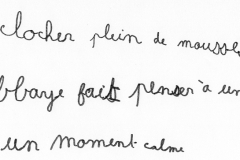 clocher plein de mousse
bbaye fait penser à un
un moment calme